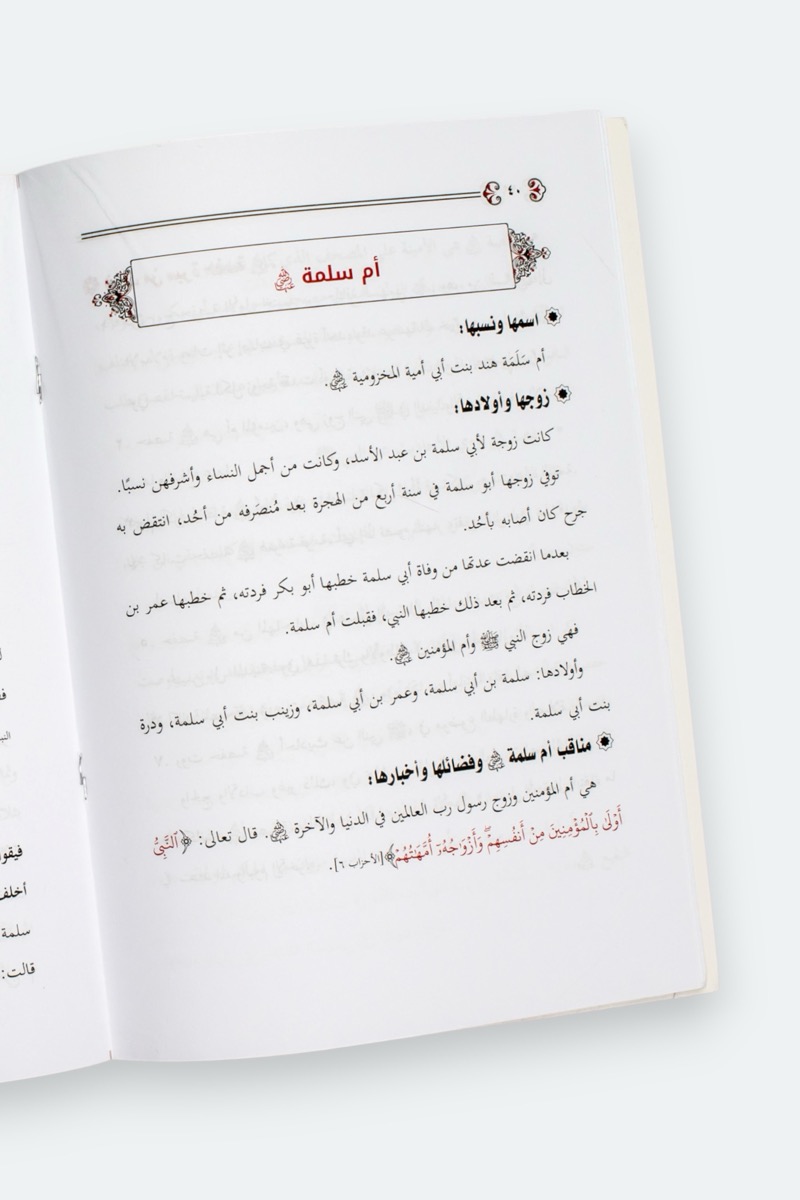 ٤٠
أم سلمة رضي الله عنها
اسمها ونسبها:
أم سَلَمَة هند بنت أبي أمية المخزومية رضي الله عنها.
زوجها وأولادها:
كانت زوجة لأبي سلمة بن عبد الأسد، وكانت من أجمل النساء وأشرفهن نسبًا.
توفي زوجها أبو سلمة في سنة أربع من الهجرة بعد مُنصَرفه من أحُد، انتقض به
جرح كان أصابه بأحُد.
بعدما انقضت عدتها من وفاة أبي سلمة خطبها أبو بكر فردته، ثم خطبها عمر بن
الخطاب فردته، ثم بعد ذلك خطبها النبي، فقبلت أم سلمة.
فهي زوج النبي ﷺ وأم المؤمنين رضي الله عنها.
وأولادها: سلمة بن أبي سلمة، وعمر بن أبي سلمة، وزينب بنت أبي سلمة، ودرة
بنت أبي سلمة.
مناقب أم سلمة رضي الله عنها وفضائلها وأخبارها:
هي أم المؤمنين وزوج رسول رب العالمين في الدنيا والآخرة رضي الله عنها. قال تعالى: ﴿ٱلنَّبِيُّ
أَوْلَىٰ بِٱلْمُؤْمِنِينَ مِنْ أَنفُسِهِمْ ۖ وَأَزْوَٰجُهُۥٓ أُمَّهَٰتُهُمْ﴾ [الأحزاب ٦].
فيقو
أخلف
سلمة
قالت: